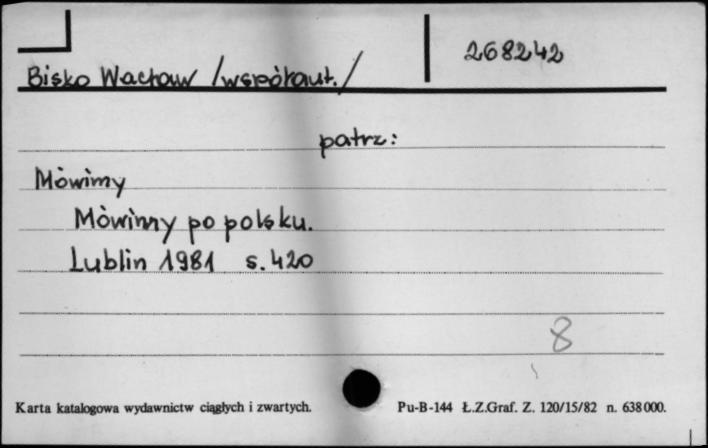 268242
Bisko Wacław /współaut./
patrz:
Mówimy
Mówimy po polsku.
Lublin 1981 s. 420
8
Karta katalogowa wydawnictw ciągłych i zwartych. Pu-B-144 Ł.Z.Graf. Z. 120/15/82 n. 638000.